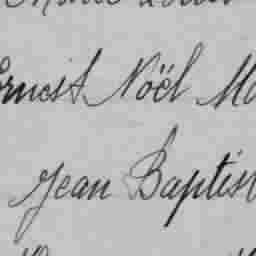 Ernest Noël Ma
Jean Baptis